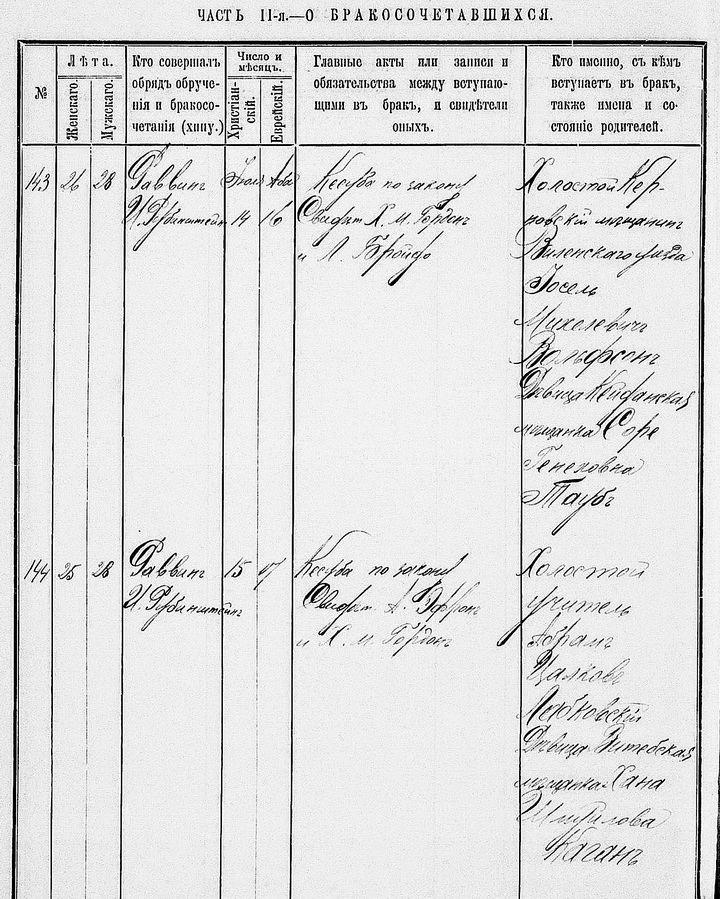 ЧАСТЬ II-я.—О БРАКОСОЧЕТАВШИХСЯ.
№
Лѣта.
Женскаго.
Мужскаго.
Кто совершалъ
обрядъ обруче-
нія и бракосо-
четанія (хипу.)
Число и
мѣсяцъ.
Христіан-
скій.
Еврейскій.
Главные акты или записи и
обязательства между вступаю-
щими въ бракъ, и свидѣтели
оныхъ.
Кто именно, съ кѣмъ
вступаетъ въ бракъ,
также имена и со-
стояніе родителей.
143 26 28 Раввинъ Іюля Аба Кесуба по закону Холостой Кер-
И. Рубинштейнъ 14 16 Свидѣт. Х. М. Гордонъ новскій мѣщанинъ
и Л. Бройдо Виленскаго уѣзда
Іосель
Михелевичъ
Вольфсонъ
Дѣвица Кейданская
мѣщанка Соре
Генеховна
Таубъ
144 25 28 Раввинъ 15 17 Кесуба по закону Холостой
И. Рубинштейнъ Свидѣт. А. Эфронъ учитель
и Х. М. Гордонъ Абрамъ
Цалковъ
Дѣвица Витебская
мѣщанка Хана
Каганъ